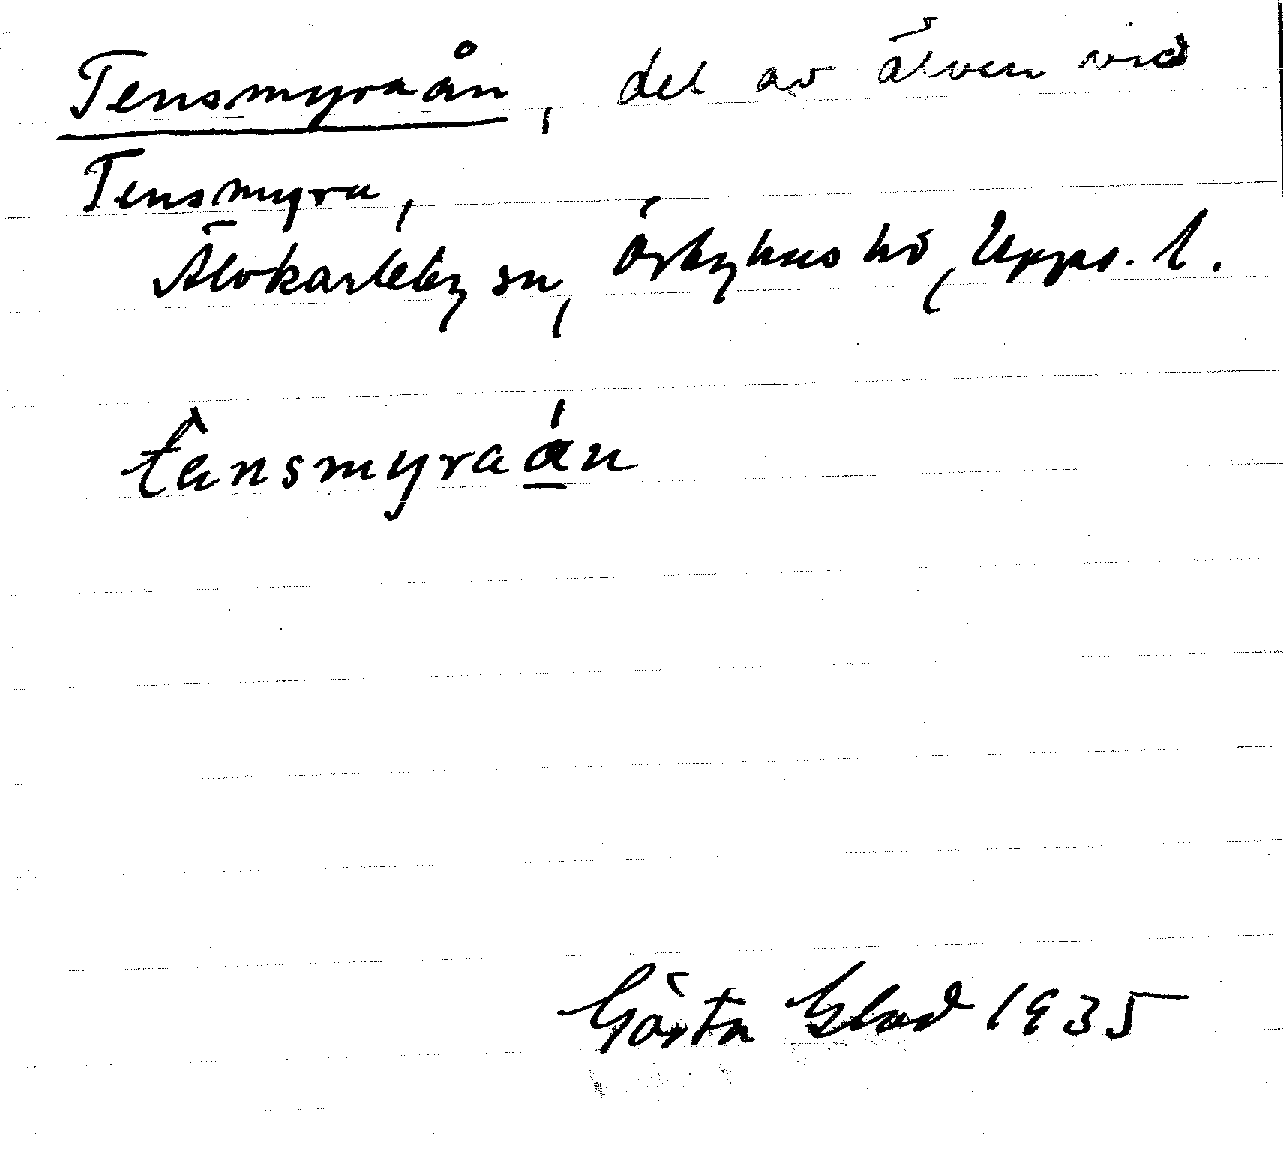 Tensmyraån, del av älven vid
Tensmyra,
Älvkarleby sn, Örbyhus hd, Upps. l.
tensmyraån
Gösta Glad 1935